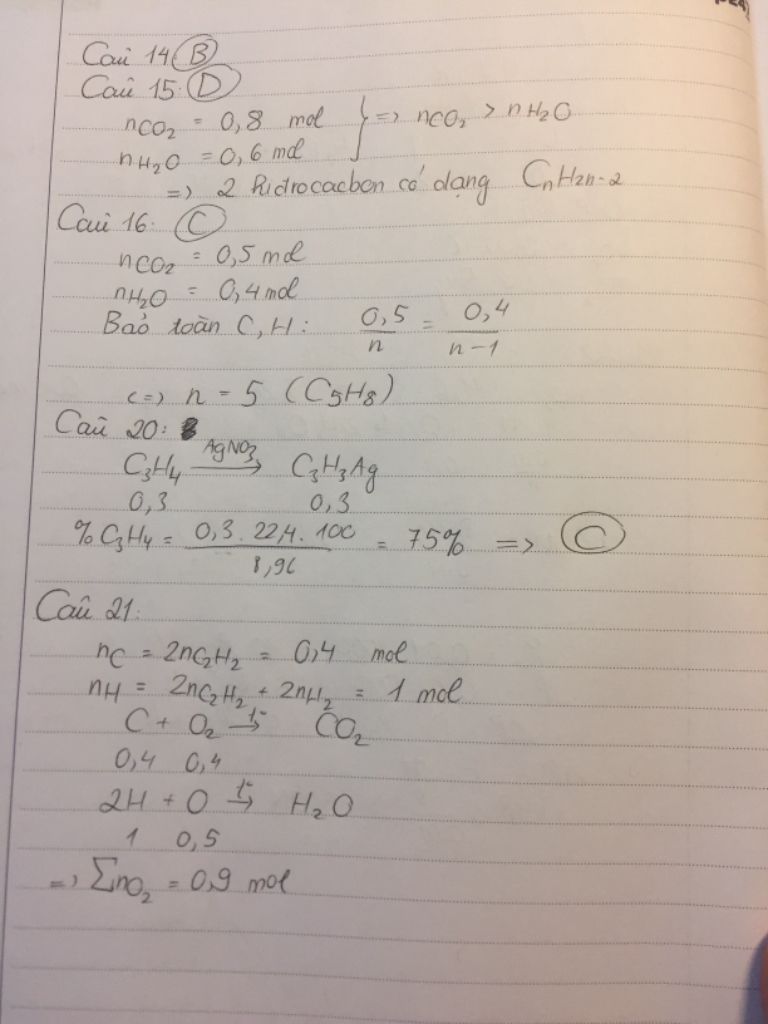 Câu 14 B
Câu 15: D
nCO2 = 0,8 mol
nH2O = 0,6 mol } => nCO2 > nH2O
=> 2 Hiđrocacbon có dạng CnH2n-2
Câu 16: C
nCO2 = 0,5 mol
nH2O = 0,4 mol
Bảo toàn C, H: 0,5/n = 0,4/n-1
<=> n = 5 (C5H8)
Câu 20:
C3H4 AgNO3→ C3H3Ag
0,3 0,3
%C3H4 = 0,3.22,4.100/8,96 = 75% => C
Câu 21:
nC = 2nC2H2 = 0,4 mol
nH = 2nC2H2 + 2nH2 = 1 mol
C + O2 t°→ CO2
0,4 0,4
2H + O t°→ H2O
1 0,5
=> ΣnO2 = 0,9 mol